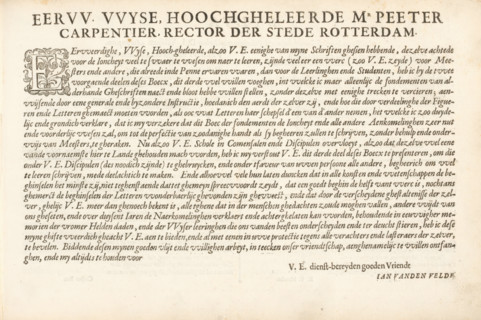 EERVV. VVYSE, HOOCHGHELEERDE Mr PEETER
CARPENTIER. RECTOR DER STEDE ROTTERDAM.
Eerweerdighe, VVyse, Hooch-gheleerde, alzoo V. E. eenighe van myne Schriften ghesien hebbende, dezelve achtede
voor de Joncheyt veel te swaer te wesen om naer te leeren, zijnde veel eer een werc (zoo V. E. zeyde) voor Mee-
sters ende andere, die alreede inde Penne ervaren waren, dan voor de Leerlinghen ende Studenten, heb ic by de twee
voorgaende deelen deses Boecx, dit derde wel willen voeghen, int welcke ic maer alleenlic de fondamenten van al-
derhande Gheschriften naect ende bloot hebbe willen stellen, zonder dezelve met eenighe trecken te vercieren, aen-
wijsende door eene generale ende byzondere Instructie, hoedanich den aerdt der zelver zij, ende hoe die door verdeelinghe der Figue-
ren ende Letteren ghemaect moeten worden, als oock wat Letteren haer schepsel d'een van d'ander nemen, het welcke is zoo duyde-
lijc ende grondelic verklaert, dat ic my verzekere dat dit Boec der fondamenten de Joncheyt ende alle andere Aenkomelinghen zeer nut
ende voorderlijc wesen zal, om tot de perfectie van zoodanighe handt als sy begheeren zullen te schrijven, zonder behulp ende onder-
wijs van Meesters, te gheraken. Nu alzoo V. E. Schole in Comensalen ende Discipulen overvloeyt, alzoo dat dezelve wel eene
vande voornaemste hier te Lande ghehouden mach worden, heb ic my verstout V. E. dit derde deel deses Boecx te presenteren, om dit
onder V. E. Disciplen (des noodich zijnde) te ghebruycken, ende onder t'faveur van uwen persoone alle andere, begheerich om wel
te leeren schrijven, mede deelachtich te maken. Ende alhoewel vele hun laten duncken dat in alle konsten ende wetenschappen de
beginselen het minste zij, niet teghenstaende dat tet ghemeyn spreecwoordt zeyde, dat een goedt begin de helft vant werc is, nochtans
ghemerct de beginselen der Letteren wonderbaerlijc ghevonden zijn gheweest, ende dat door de verscheydene ghestaltenisse der zel-
ver, ghelijc V. E. meer dan ghenoech bekent is, alle t'ghene dat in der menschen ghedachten zoude moghen vallen, andere wijdt van
ons ghesteten, ende over duysent Iaren de Naerkomelinghen verklaert ende achterghelaten kan worden, behoudende in eeuwigher me-
morien der vromer Helden daden, ende der VVyser leeringhen die ons vanden beesten onderscheyden ende ter deucht stieren, heb ic dese
myne gheschrifte dienstachtich V. E. aen te bieden, ende al met eenen in uwe protectie tegen alle verachters ende lasteraers der zelver,
te bevelen. Biddende desen mynen goeden wil ende willighen arbeyt, in teecken onser vriendschap, aenghenamelijc te willen ontfan-
ghen, ende my altijds te houden voor
V. E. dienst-bereyden goeden Vriendt
IAN VANDEN VELDE.